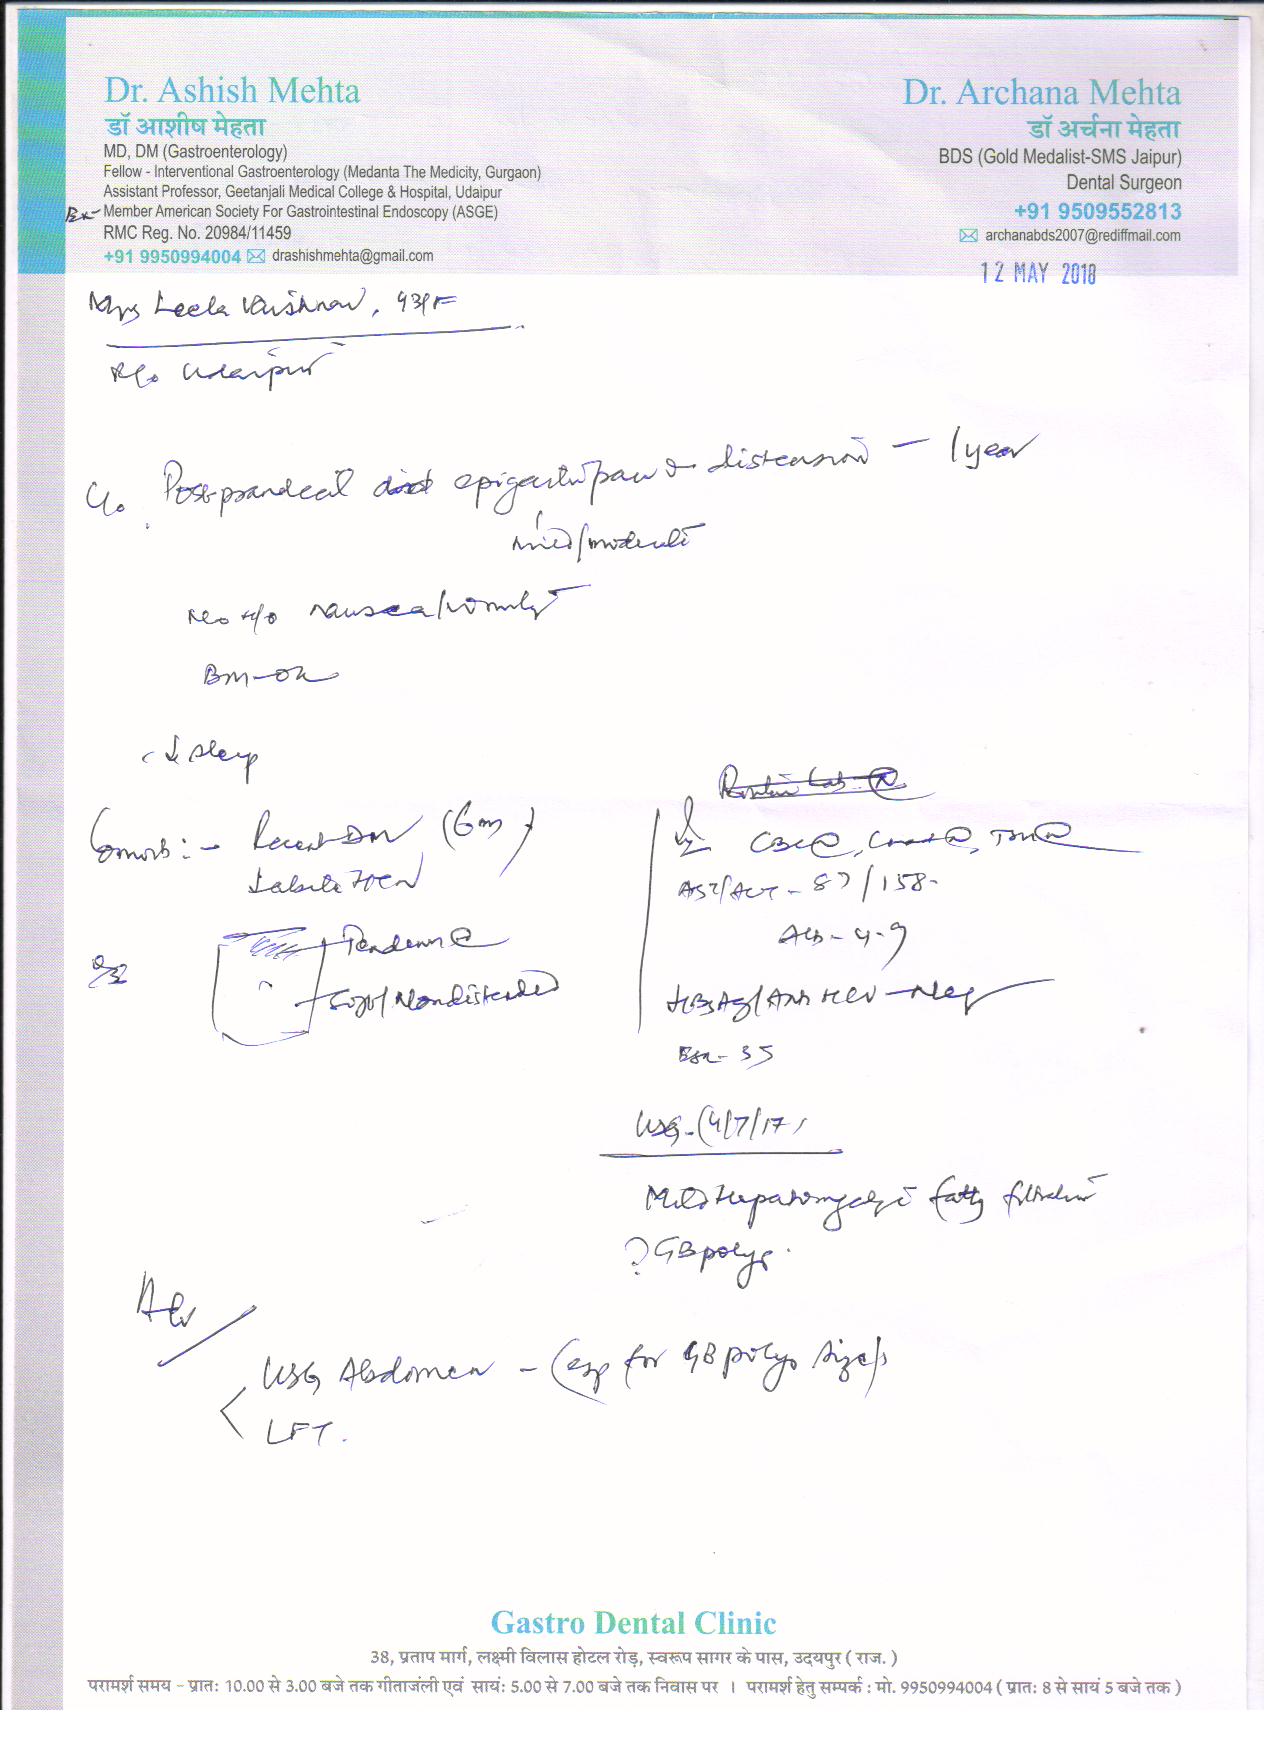 Dr. Ashish Mehta
डॉ आशीष मेहता
MD, DM (Gastroenterology)
Fellow - Interventional Gastroenterology (Medanta The Medicity, Gurgaon)
Assistant Professor, Geetanjali Medical College & Hospital, Udaipur
Member American Society For Gastrointestinal Endoscopy (ASGE)
RMC Reg. No. 20984/11459
+91 9950994004 drashishmehta@gmail.com
Dr. Archana Mehta
डॉ अर्चना मेहता
BDS (Gold Medalist-SMS Jaipur)
Dental Surgeon
+91 9509552813
archanabds2007@rediffmail.com
12 MAY 2018
Mrs Leela Vaishnav, 43/F
R/o Udaipur
C/o Postprandial epigastric pain & distension - 1 year
mild/moderate
No H/o nausea/vomiting
BM-OK
↓ sleep
Comorb :- Recent DM (6m)
Labile HTN
O/E
Tenderness
Soft/Nondistended
Routine Lab. (N)
CBC (N), Creat (N), TSH (N)
AST/ALT - 87/158
Alb - 4.9
HBsAg/Anti HCV - Neg
ESR - 35
USG - (4/7/17)
Mild Hepatomegaly fatty
? GB polyp.
Adv
USG Abdomen - (esp for GB polyp size)
LFT.
Gastro Dental Clinic
38, प्रताप मार्ग, लक्ष्मी विलास होटल रोड़, स्वरूप सागर के पास, उदयपुर ( राज. )
परामर्श समय - प्रातः 10.00 से 3.00 बजे तक गीतांजली एवं सायं: 5.00 से 7.00 बजे तक निवास पर । परामर्श हेतु सम्पर्क : मो. 9950994004 ( प्रातः 8 से सायं 5 बजे तक )